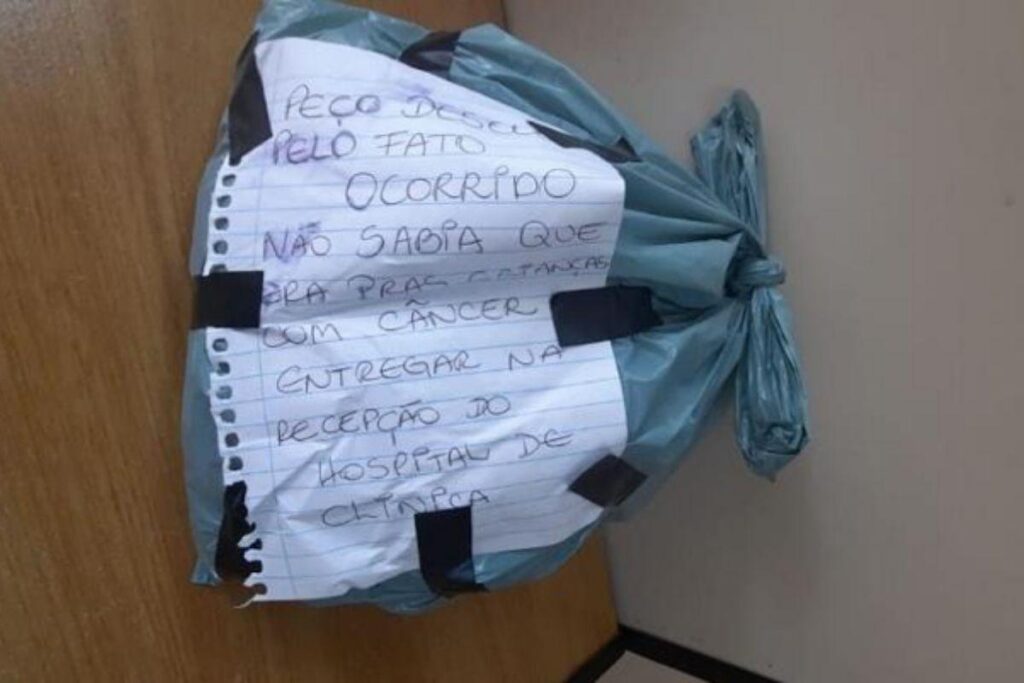 PEÇO
PELO FATO
OCORRIDO
NÃO SABIA QUE
ERA PRAS CRIANÇAS
COM CÂNCER
ENTREGAR NA
RECEPÇÃO DO
HOSPITAL DE
CLÍNICA